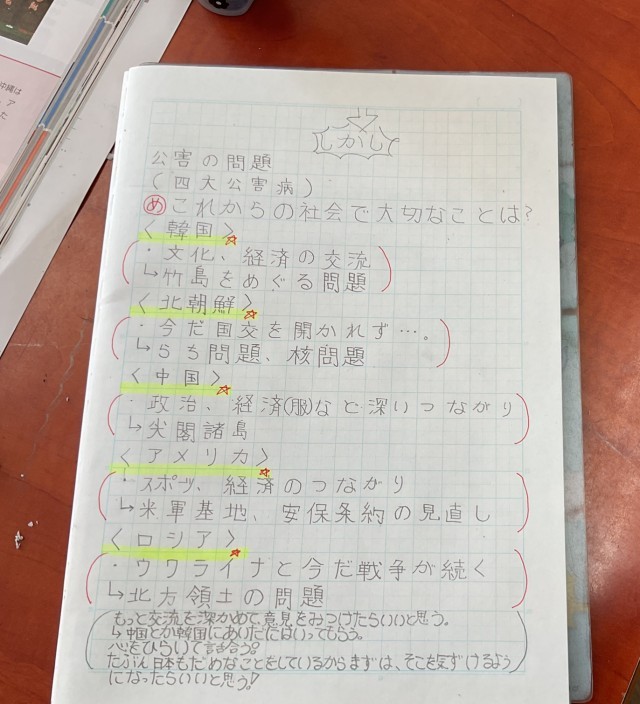 しかし
公害の問題
(四大公害病)
めこれからの社会で大切なことは?
<韓国>
・文化、経済の交流
↳竹島をめぐる問題
<北朝鮮>
・今だ国交を開かれず…。
↳らち問題、核問題
<中国>
・政治、経済(服)など深いつながり
↳尖閣諸島
<アメリカ>
・スポーツ、経済のつながり
↳米軍基地、安保条約の見直し
<ロシア>
・ウクライナと今だ戦争が続く
↳北方領土の問題
もっと交流を深かめて、意見をみつけたらいいと思う。
↳中国とか韓国にあいだにはいってもらう。
心をひらいて話し合う。
たぶん日本もだめなことをしているからまずは、そこを気ずけるよう
になったらいいと思う!